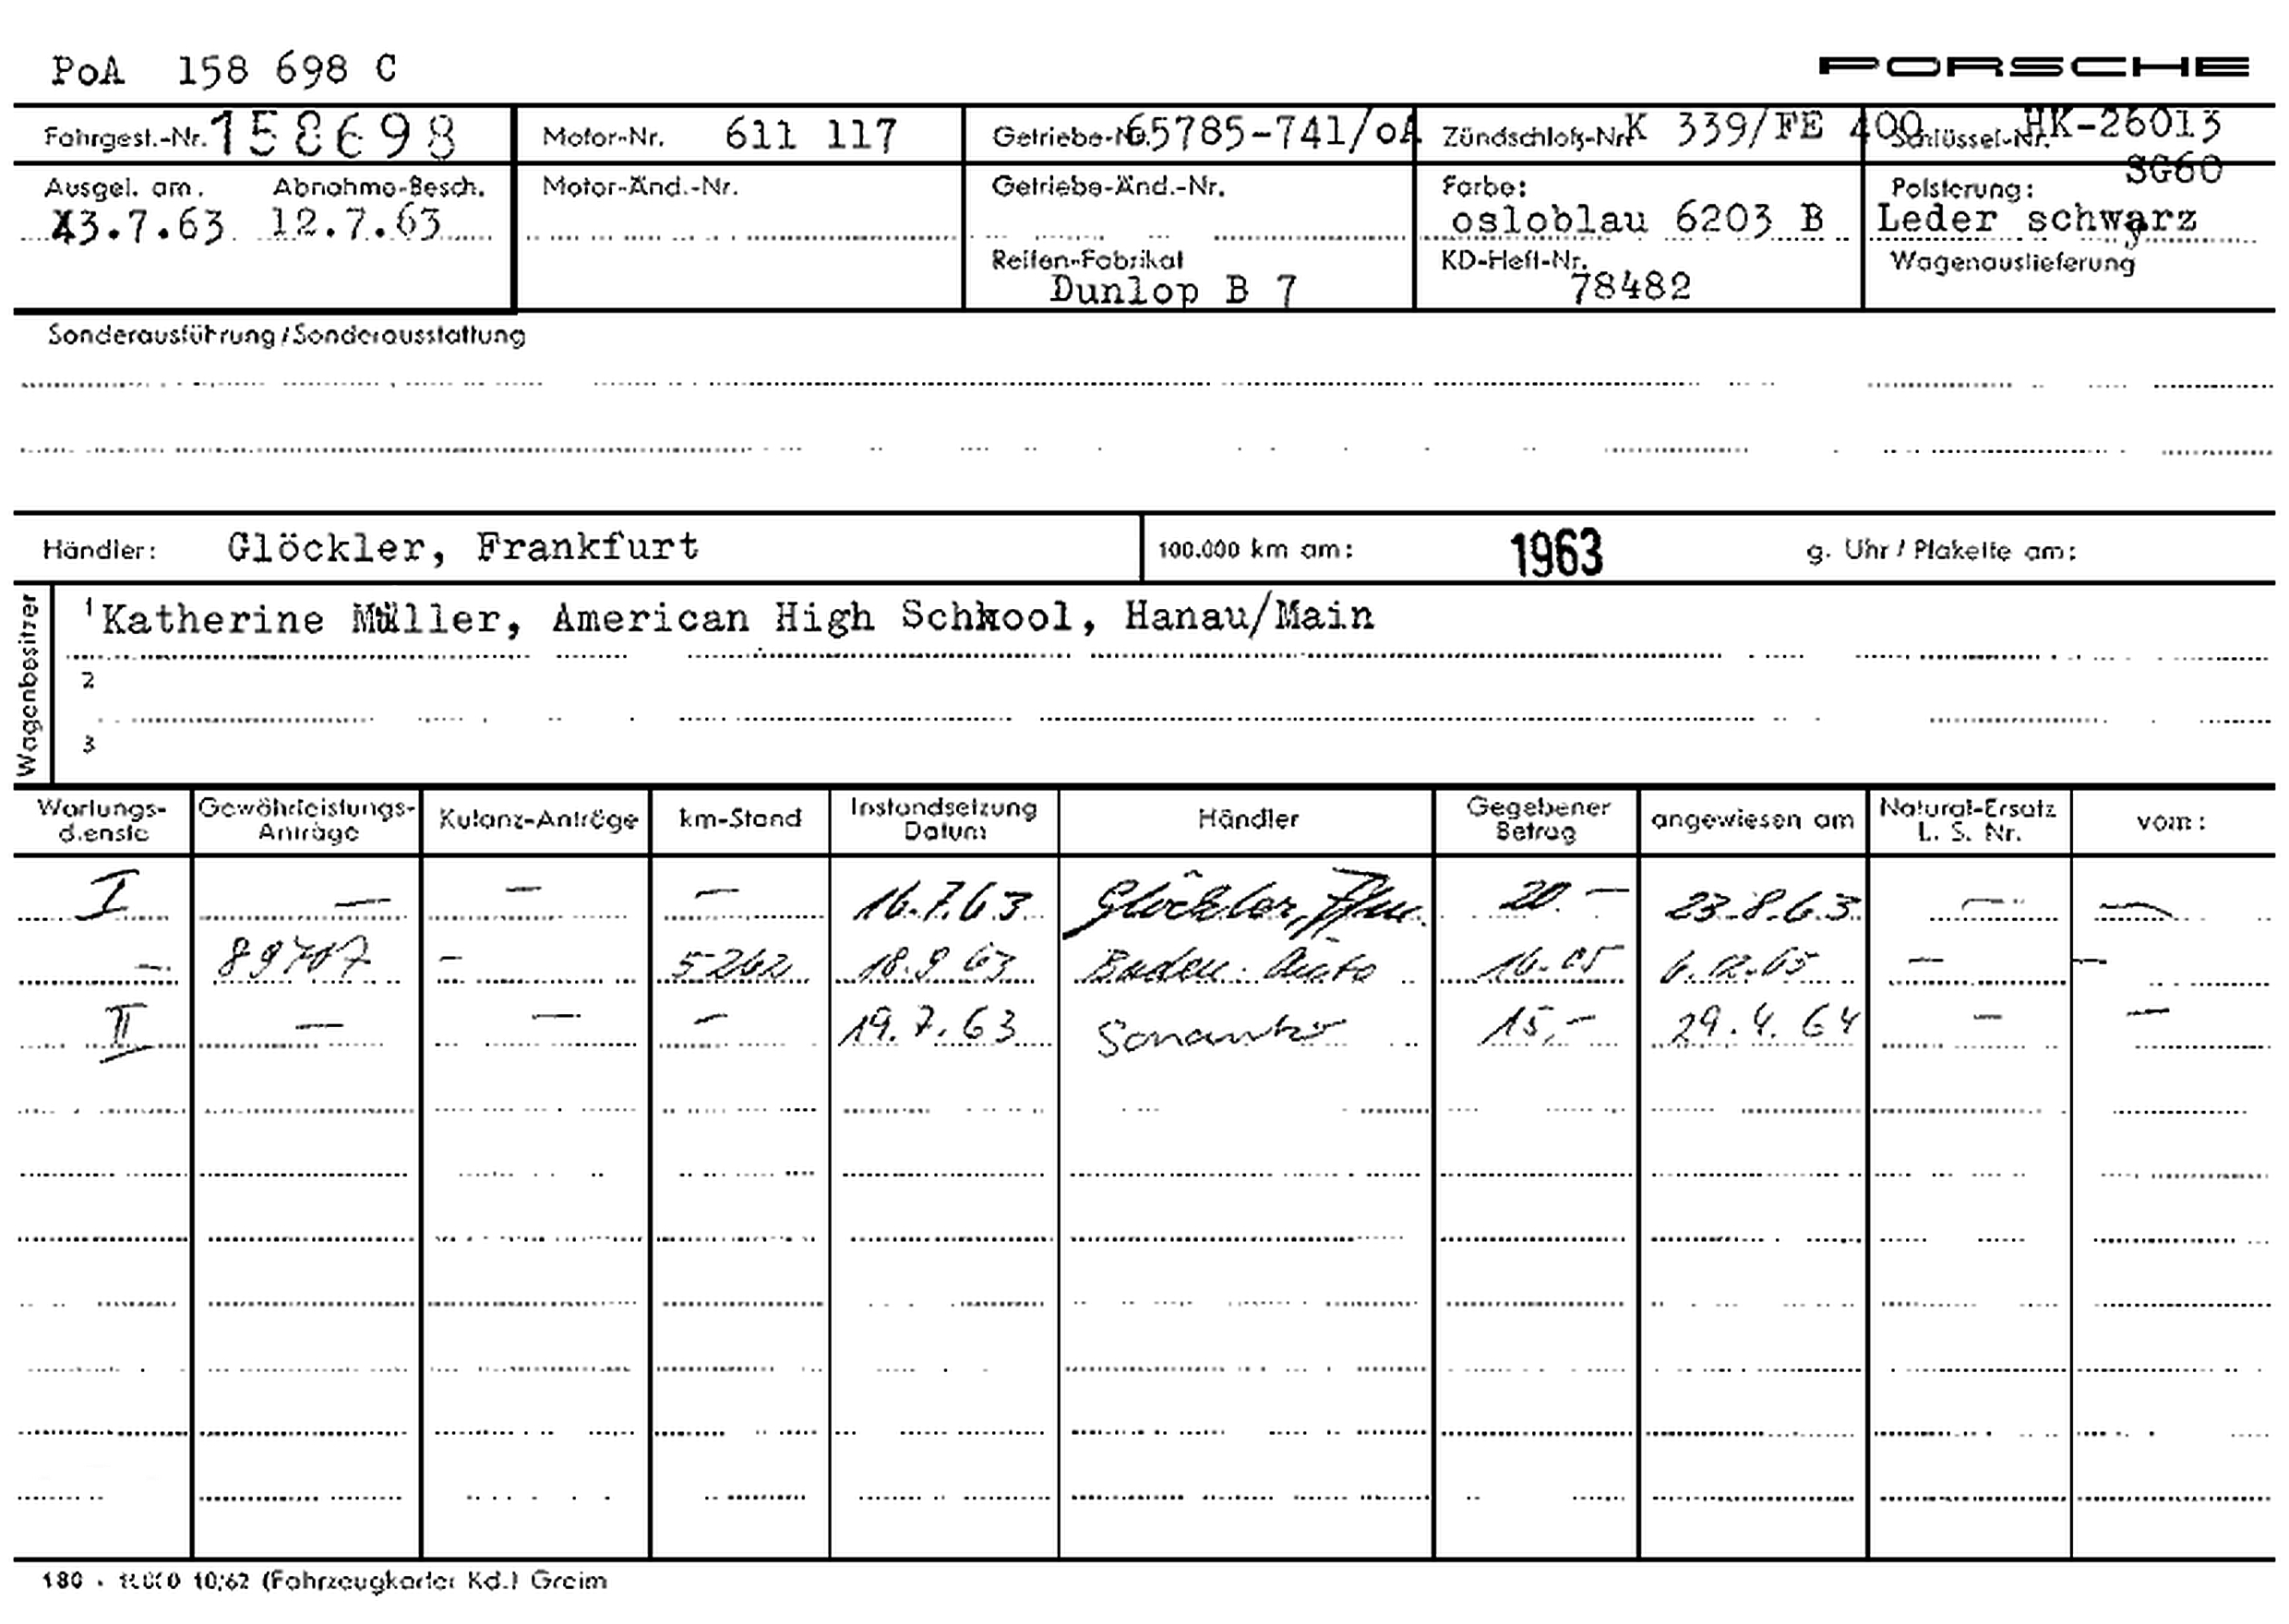 PoA 158 698 C PORSCHE
Fahrgest.-Nr. 158698 Motor-Nr. 611 117 Getriebe-Nr. 65785-741/oA Zündschloß-Nr. K 339/FE 400 Schlüssel-Nr. HK-26013
SG60
Ausgel. am. Abnahme-Besch. Motor-Änd.-Nr. Getriebe-Änd.-Nr. Farbe: Polsterung:
13.7.63 12.7.63 osloblau 6203 B Leder schwarz
Reifen-Fabrikat KD-Heft-Nr. Wagenauslieferung
Dunlop B 7 78482
Sonderausführung/Sonderausstattung
Händler: Glöckler, Frankfurt 100.000 km am: 1963 g. Uhr / Plakette am:
Wagenbesitzer
1 Katherine Müller, American High School, Hanau/Main
2
3
Wartungs- Gewährleistungs- Kulanz-Anträge km-Stand Instandsetzung Händler Gegebener angewiesen am Natural-Ersatz vom:
dienste Anträge Datum Betrag L. S. Nr.
I — — — 16.7.63 Glöckler, 20.— 23.8.63 — —
— 89707 - 5262 18.9.63 Auto 16.05 — —
II — — — 19.7.63 15,— 29.4.64 — —
180 · 10/62 (Fahrzeugkartei Kd.) Greim